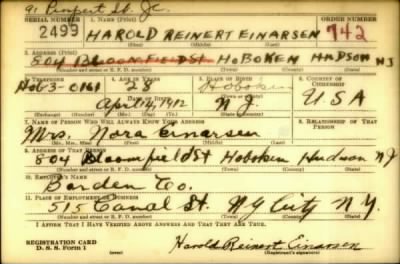 91 St. J.C.
SERIAL NUMBER 1. NAME (Print) ORDER NUMBER
2499 HAROLD REINERT EINARSEN 742
(First) (Middle) (Last)
2. ADDRESS (Print)
804 BLOOMFIELD ST HOBOKEN HUDSON NJ
(Number and street or R. F. D. number) (Town) (County) (State)
3. TELEPHONE 4. AGE IN YEARS 5. PLACE OF BIRTH 6. COUNTRY OF CITIZENSHIP
Hob 3-0161 28 Hoboken
DATE OF BIRTH
April 14, 1912 N.J. U S A
(Exchange) (Number) (Mo.) (Day) (Yr.) (State or country)
7. NAME OF PERSON WHO WILL ALWAYS KNOW YOUR ADDRESS 8. RELATIONSHIP OF THAT PERSON
Mrs. Nora Einarsen
(Mr., Mrs., Miss) (First) (Middle) (Last)
9. ADDRESS OF THAT PERSON
804 Bloomfield St Hoboken Hudson NJ
(Number and street or R. F. D. number) (Town) (County) (State)
10. EMPLOYER'S NAME
Borden Co.
11. PLACE OF EMPLOYMENT OR BUSINESS
515 Canal St. N.Y. City N.Y.
(Number and street or R. F. D. number) (Town) (County) (State)
I AFFIRM THAT I HAVE VERIFIED ABOVE ANSWERS AND THAT THEY ARE TRUE.
REGISTRATION CARD
D. S. S. Form 1
Harold Reinert Einarsen
(Registrant's signature)